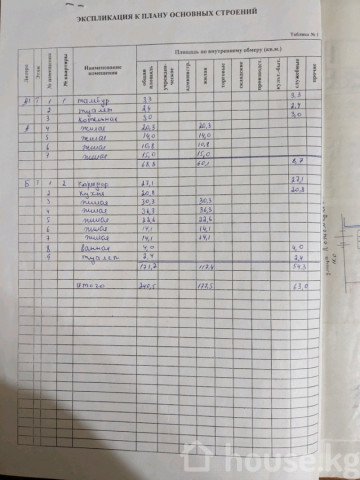 ЭКСПЛИКАЦИЯ К ПЛАНУ ОСНОВНЫХ СТРОЕНИЙ
Таблица № 1
Литера Этаж № помещения № квартиры Наименование помещения Площадь по внутреннему обмеру (кв.м.)
общая площадь учрежденческая администр. жилая торговая складские производст. культ.-быт. служебные прочие
1 1 тамбур 3,3 3,3
2 туалет 2,4 2,4
3 котельная 3,0 3,0
А 4 жилая 20,3 20,3
5 жилая 14,0 14,0
6 жилая 10,8 10,8
7 жилая 15,0 15,0
68,8 60,1 8,7
Б 1 1 2 коридор 27,1 27,1
2 кухня 20,8 20,8
3 жилая 30,3 30,3
4 жилая 36,3 36,3
5 жилая 22,6 22,6
6 жилая 14,1 14,1
7 жилая 14,1 14,1
8 ванная 4,0 4,0
9 туалет 2,4 2,4
171,7 117,4 54,3
Итого 240,5 177,5 63,0
house.kg